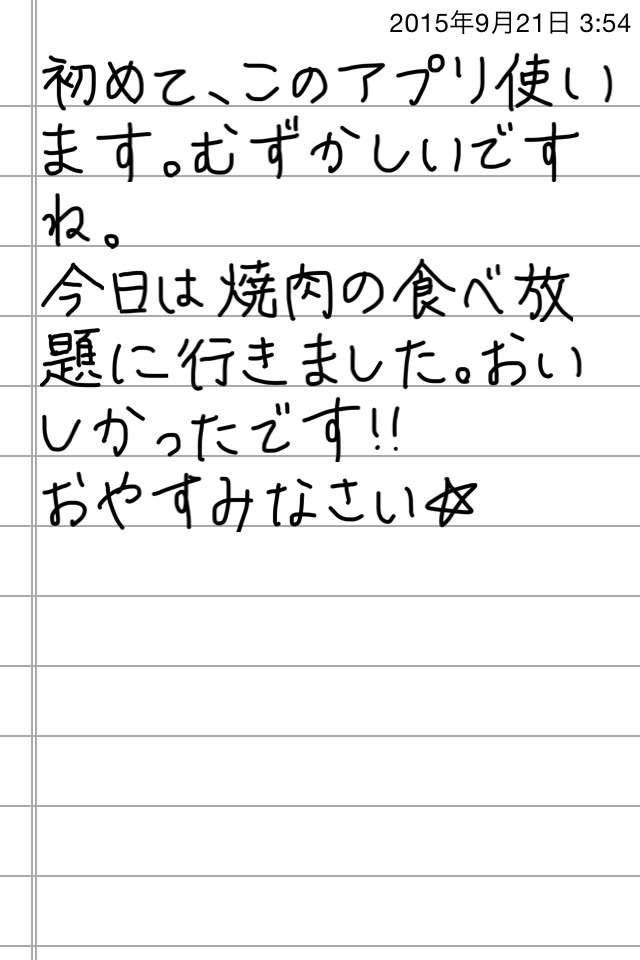 2015年9月21日 3:54
初めて、このアプリ使い
ます。むずかしいです
ね。
今日は焼肉の食べ放
題に行きました。おい
しかったです!!
おやすみなさい☆